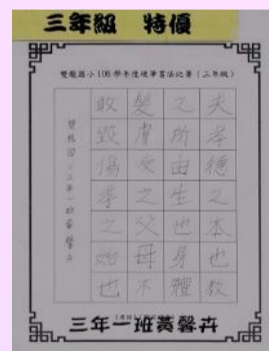 三年級 特優
雙龍國小 106 學年度硬筆書法比賽（三年級）
夫孝德之本也教
之所由生也身體
髮膚受之父母不
敢毀傷孝之始也
雙龍國小三年一班黃馨卉
三年一班黃馨卉